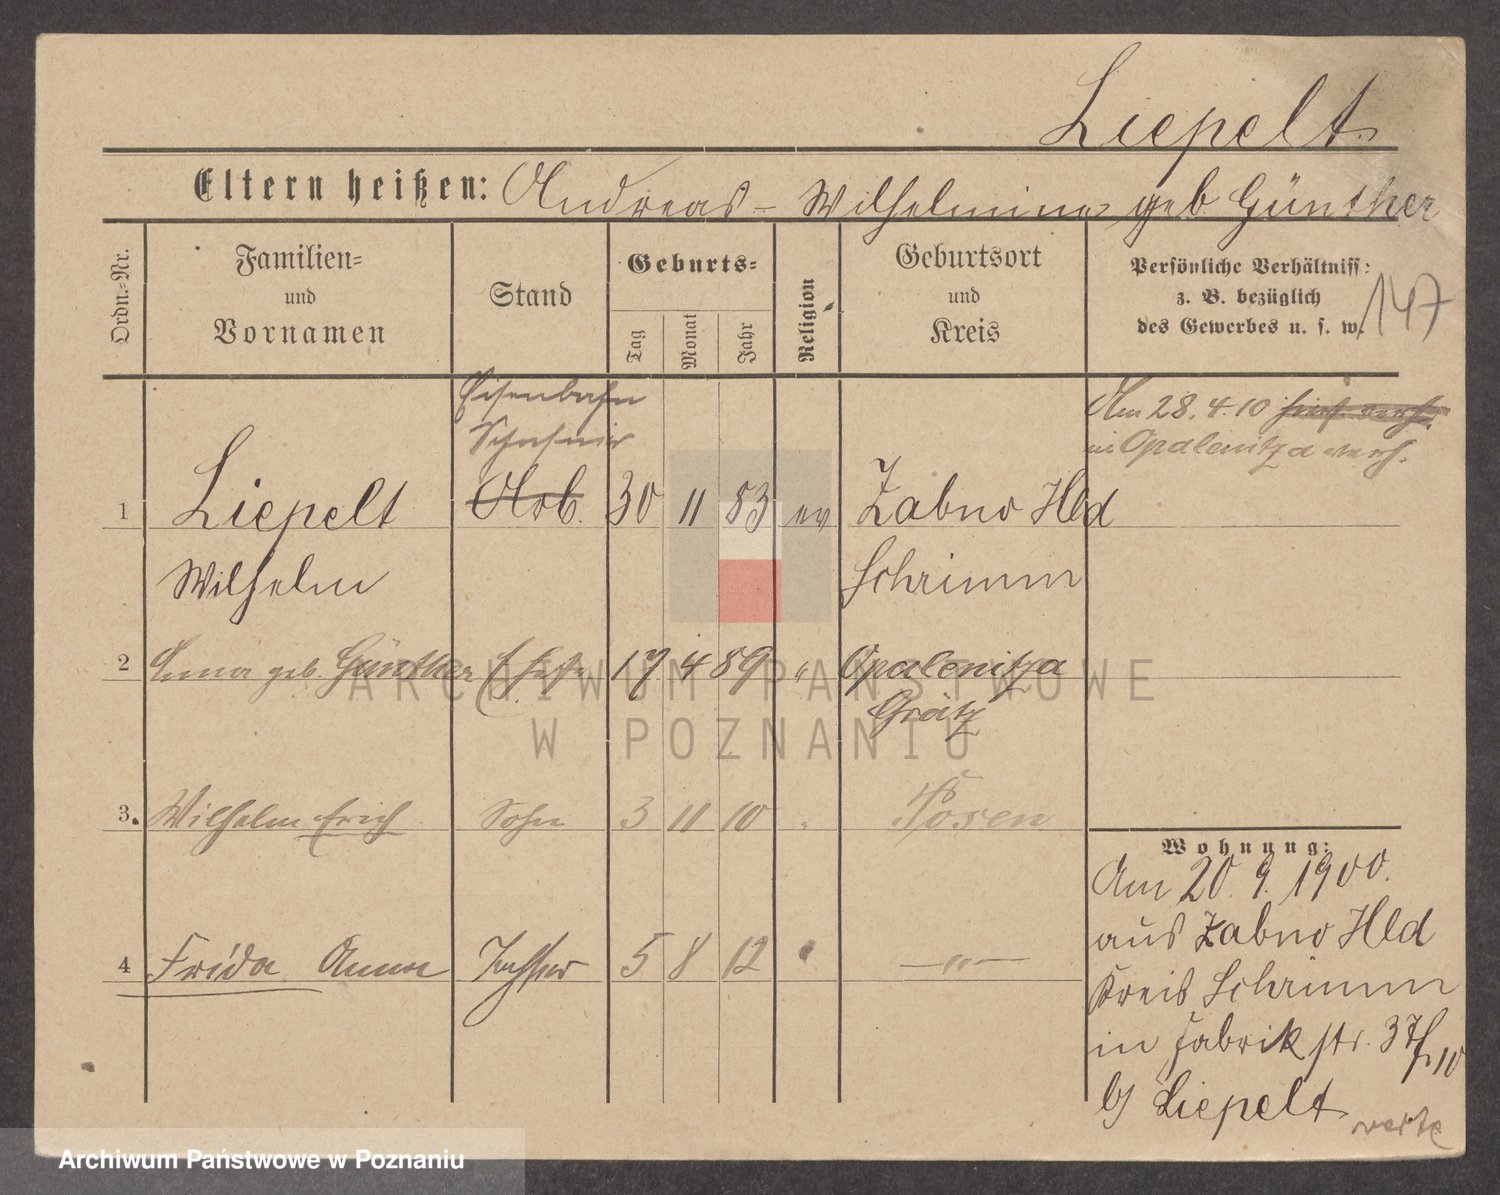 Liepelt
Eltern heißen: Andreas - Wilhelmine geb. Günther
Ordn.-Nr.
Familien-
und
Vornamen
Stand
Geburts-
Tag
Monat
Jahr
Religion
Geburtsort
und
Kreis
Persönliche Verhältniss:
z. B. bezüglich
des Gewerbes u. s. w.
147
Eisenbahn
Am 28.4.10
in Opalenitza verh.
1 Liepelt Arb. 30 11 83 ev Zabno Hld
Wilhelm Schrimm
2 Anna geb. Günther Ehefr 17 4 89 " Opalenitza
Grätz
3. Wilhelm Erich Sohn 3 11 10 " Posen
4 Frida Anna Tochter 5 8 12 " — " —
Wohnung:
Am 20.9.1900.
aus Zabno Hld
Kreis Schrimm
in Fabrikstr. 37
b/ Liepelt
ARCHIWUM PAŃSTWOWE
W POZNANIU
Archiwum Państwowe w Poznaniu